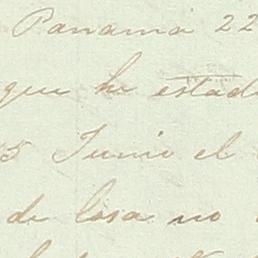 Panamá 22
que he estad
5 Junio el
de losa no